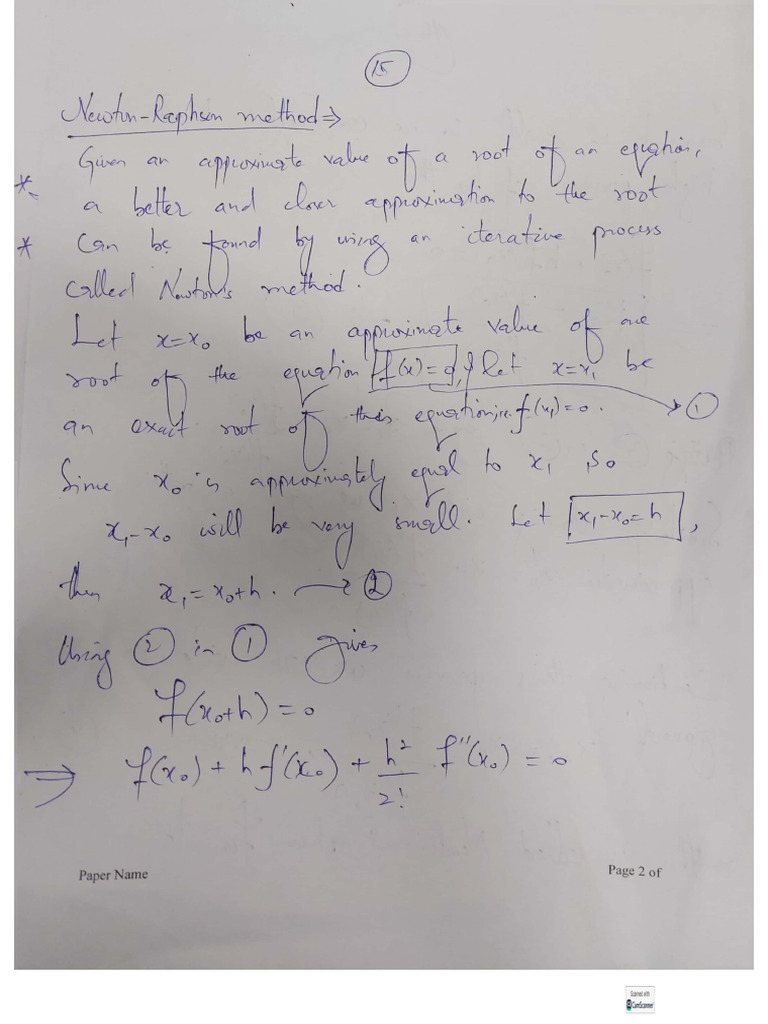 15
Newton-Raphson method ⇒
Given an approximate value of a root of an equation,
* a better and closer approximation to the root
* Can be found by using an iterative process
called Newton's method.
Let x=x₀ be an approximate value of one
root of the equation f(x)=0, & let x=x₁ be
an exact root of this equation, i.e. f(x₁)=0. → ①
Since x₀ is approximately equal to x₁, so
x₁-x₀ will be very small. Let x₁-x₀=h,
then x₁=x₀+h. → ②
Using ② in ① gives
f(x₀+h)=0
⇒ f(x₀) + hf'(x₀) + h²/2! f''(x₀) = 0
Paper Name Page 2 of
Scanned with
CamScanner